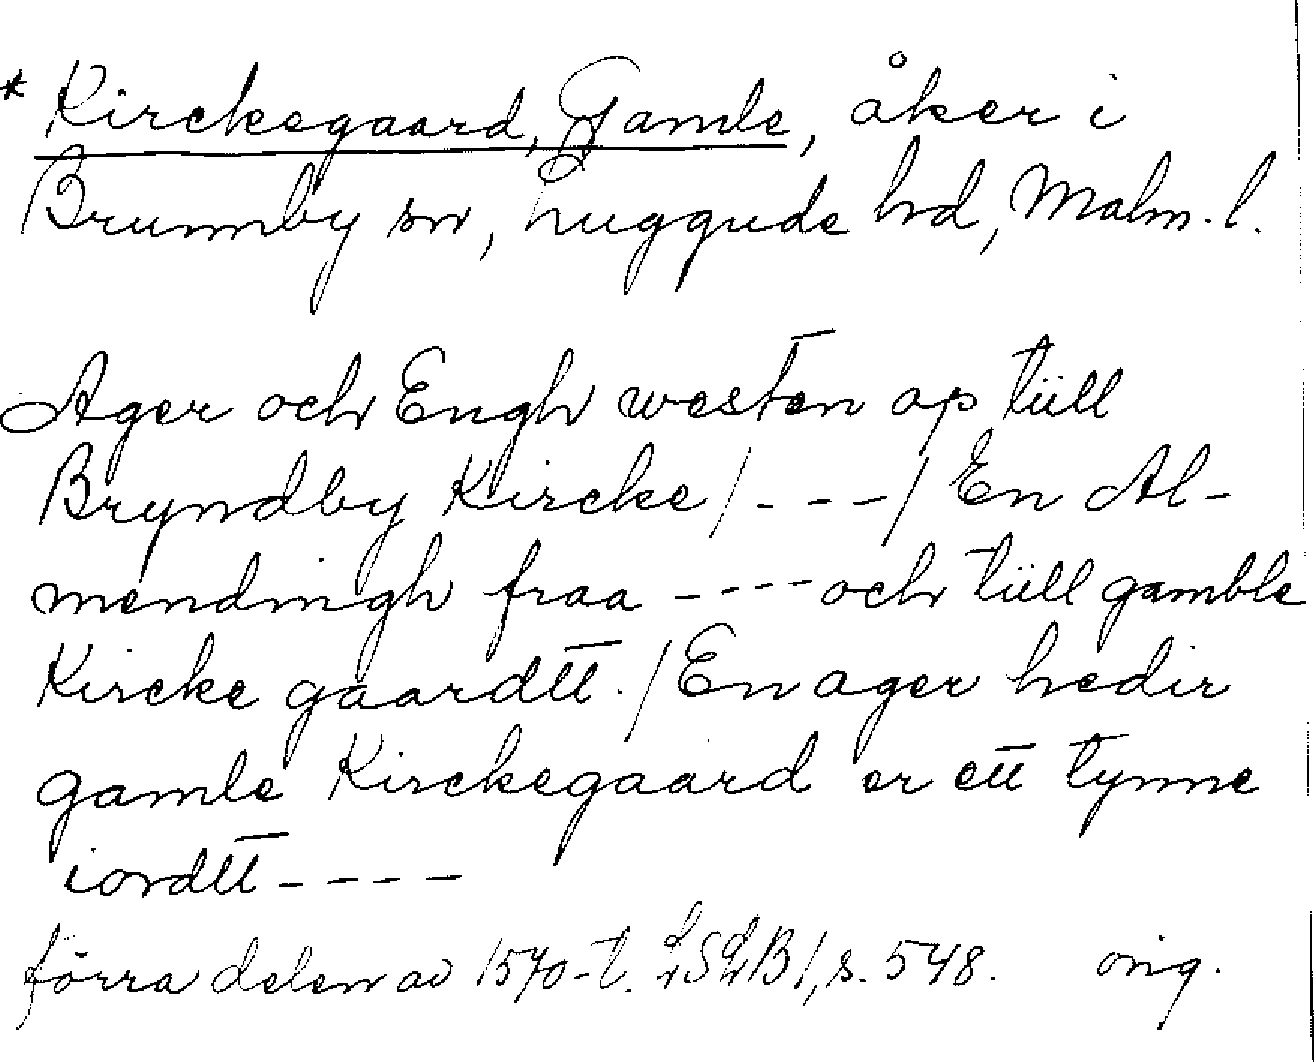 * Kirckegaard, Gamle, åker i
Brunnby sn, Luggude hd, Malm. l.
Ager och Engh westen op tüll
Bryndby Kircke / - - - / En Al-
mendingh fraa - - - - och tüll gamble
Kircke gaardtt. / En ager hedir
gamle Kirckegaard er ett tynne
iordtt - - - -
förra delen av 1570-t. LSLB 1, s. 548. orig.